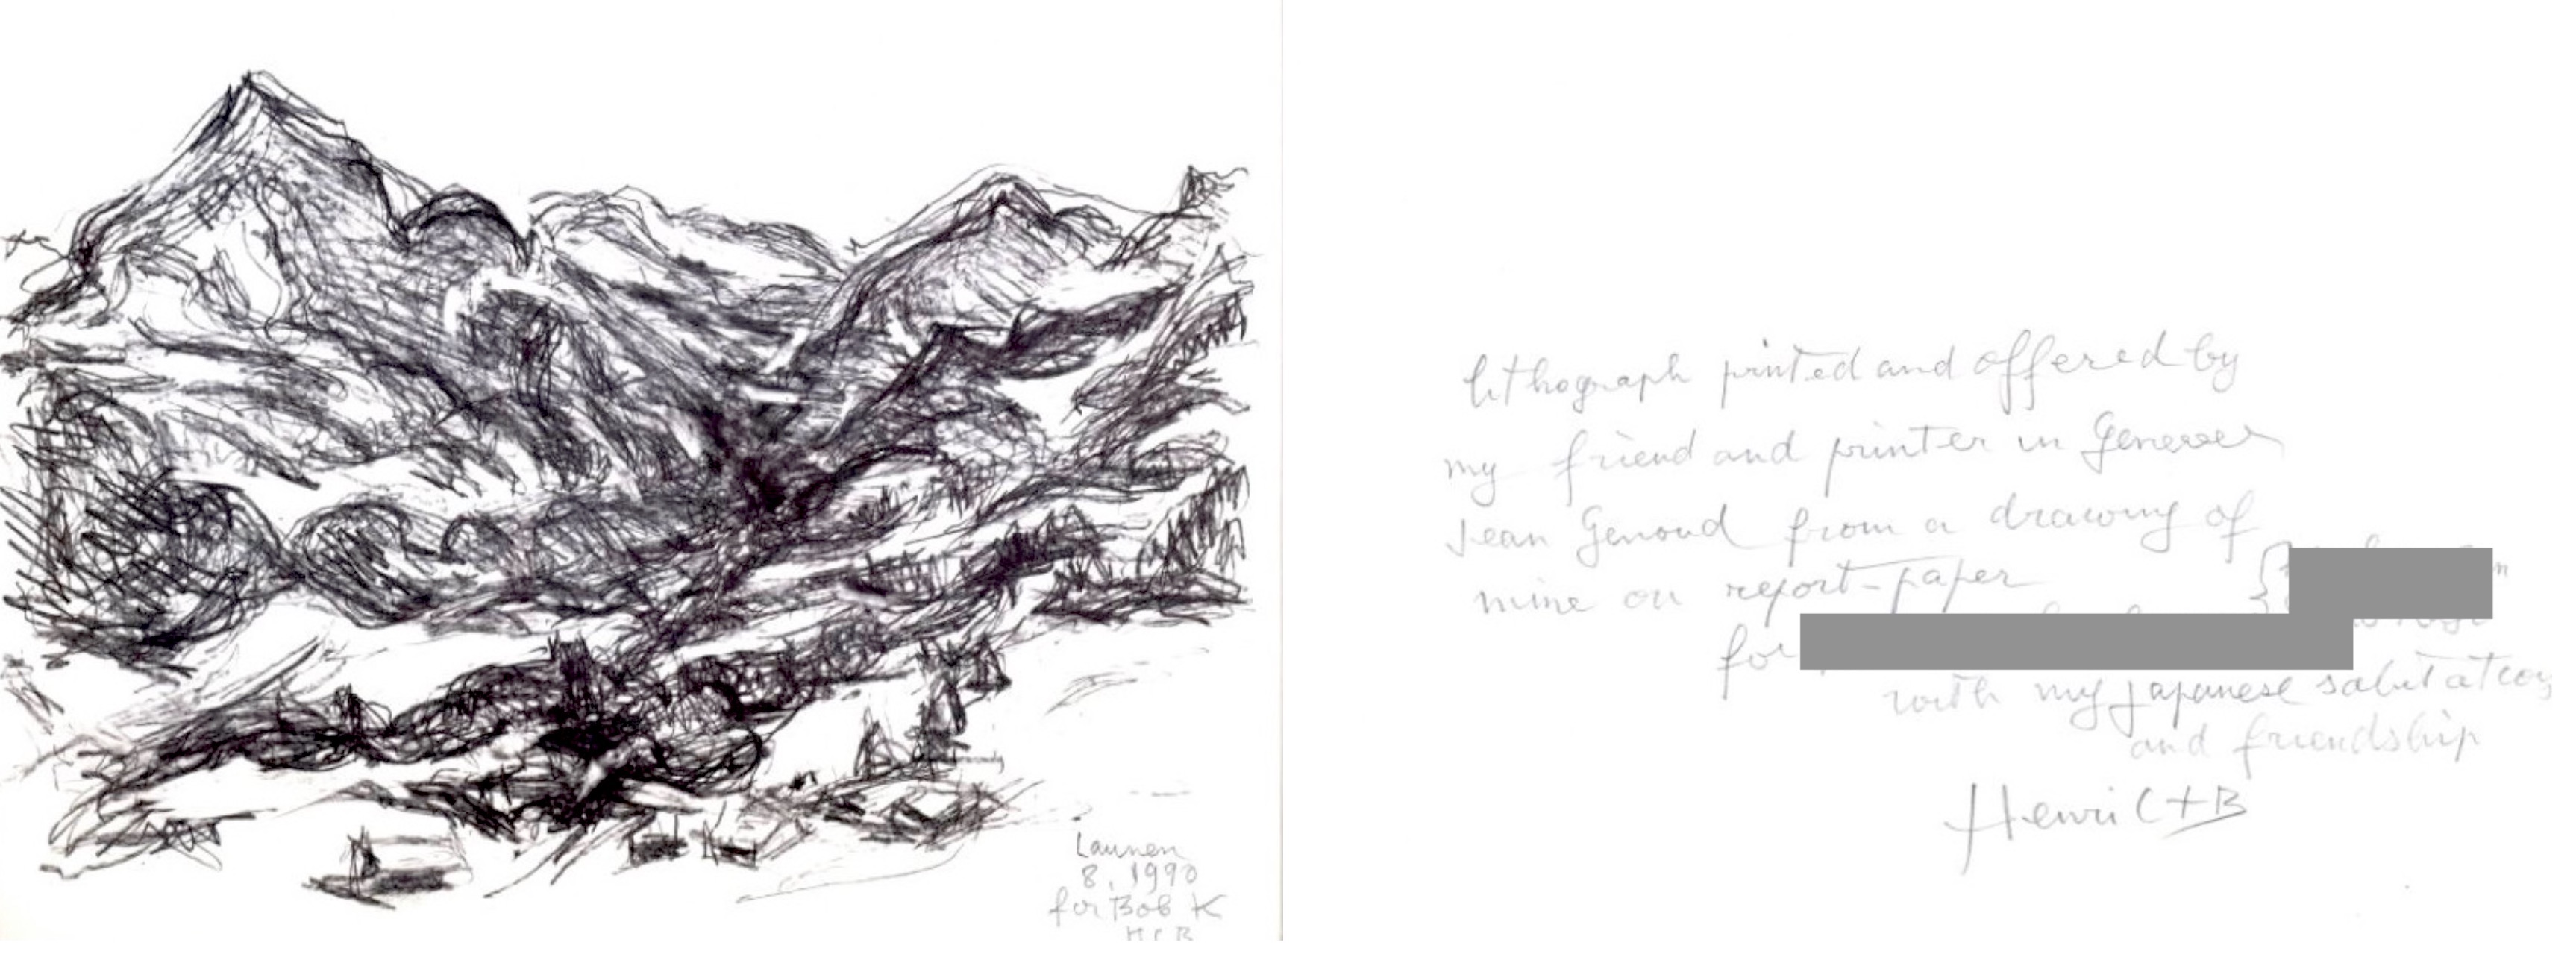 Launen
8. 1990
for Bob K
HCB
lithograph printed and offered by
my friend and printer in Geneve
Jean Genoud from a drawing of
mine on report-paper
for
with my japanese salutations
and friendship
Henri C+B